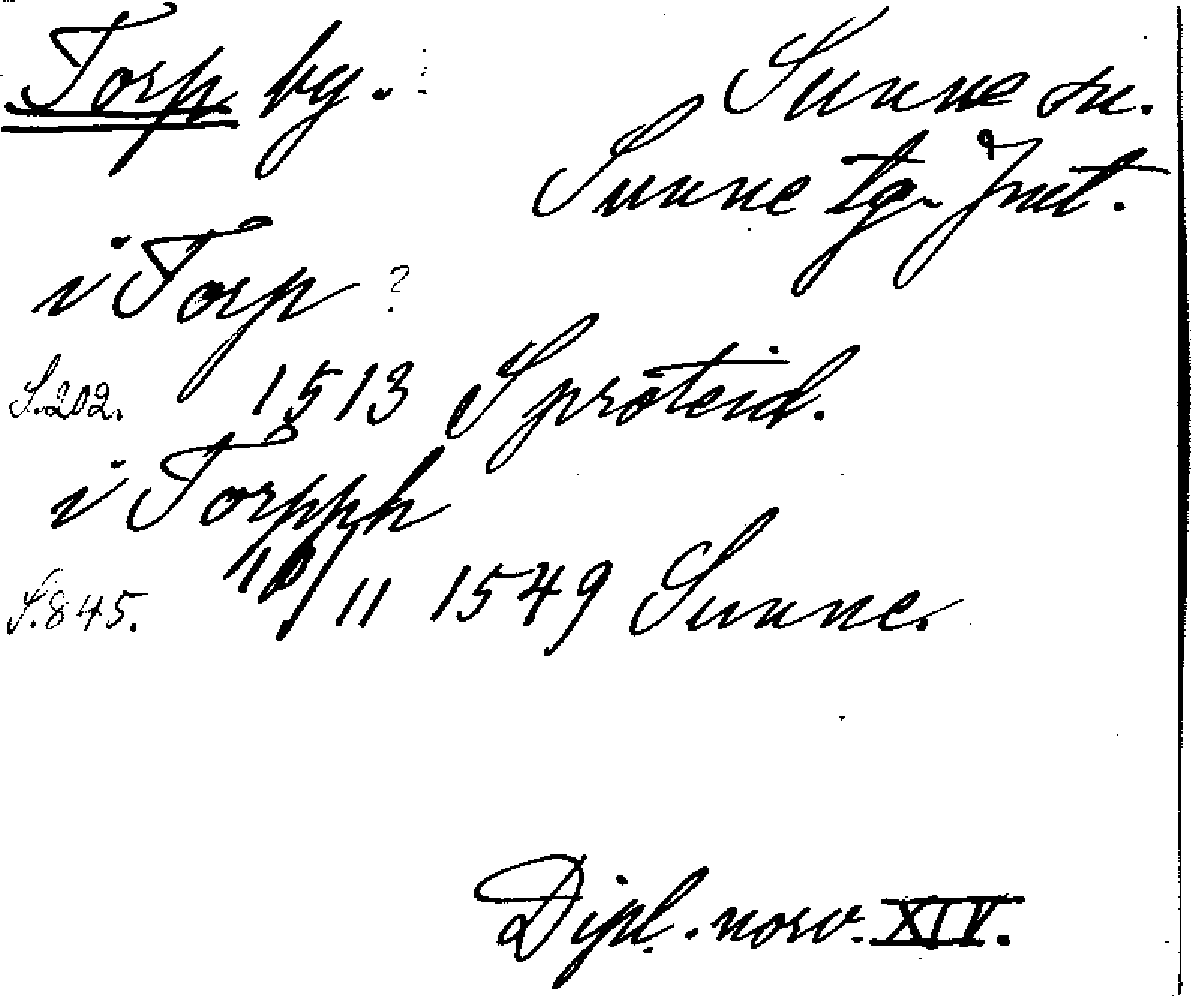 Torp by. Sunne sn.
Sunne tg. Jmt.
i Torp ?
S. 202. 1513 Sproteid.
i Torpph
S. 845. /11 1549 Sunne.
Dipl. norv. XIV.